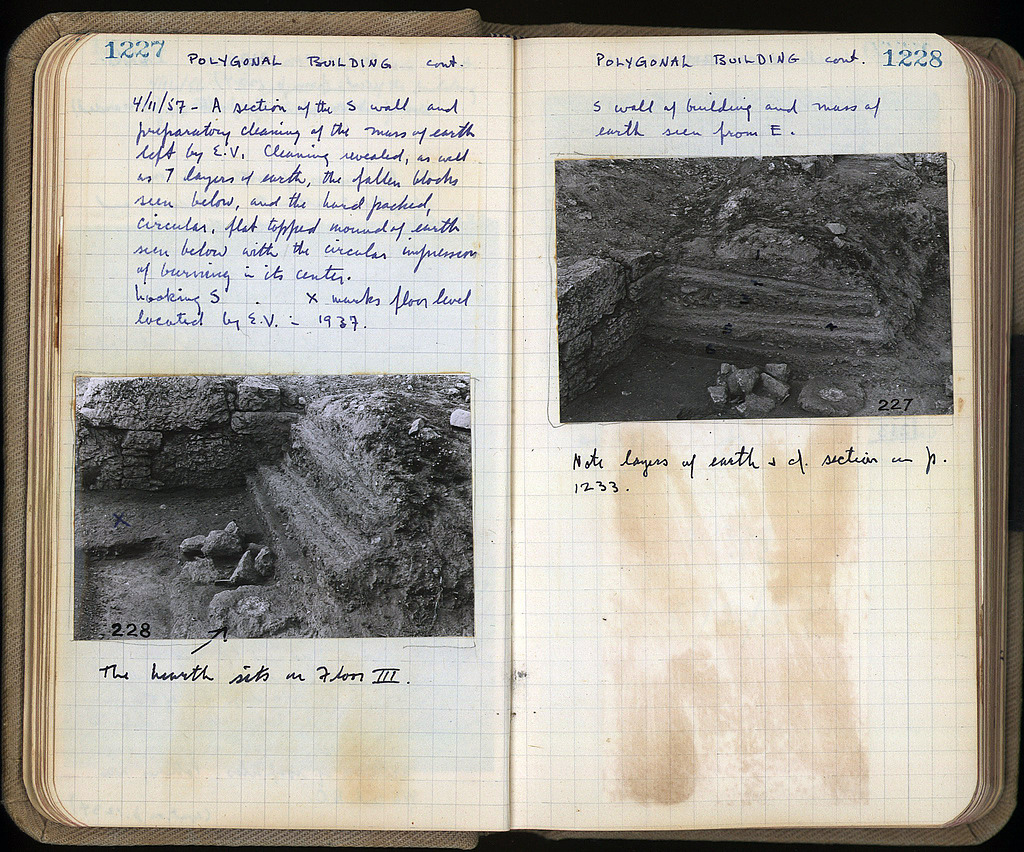 1227
POLYGONAL BUILDING cont.
4/11/57 - A section of the S wall and
preparatory cleaning of the mass of earth
left by E.V. Cleaning revealed, as well
as 7 layers of earth, the fallen blocks
seen below, and the hard packed,
circular, flat topped mound of earth
seen below with the circular impression
of burning in its center.
Looking S . X marks floor level
located by E.V. - 1937.
X
228
The hearth sits on Floor III.
POLYGONAL BUILDING cont. 1228
S wall of building and mass of
earth seen from E.
1
2
3
4
5
6
227
Note layers of earth & cf. section on p.
1233.